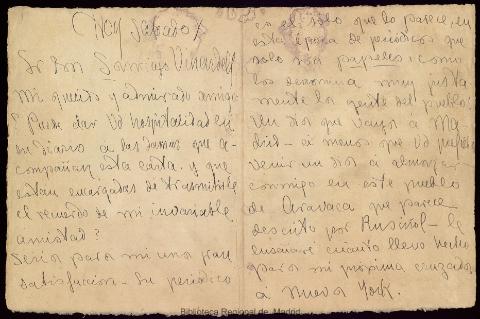 Hoy Sabado
Sr Don Santiago Vinardell
Mi querido y admirado amigo
¿Puede dar Vd hospitalidad en
su diario a las lineas que a-
compañan esta carta y que
estan encargadas de trasmitirle
el recuerdo de mi invariable
amistad?
Seria para mi una gran
satisfaccion - Su periodico
es el solo que lo parece, en
esta época de periódicos que
solo son papeles: como
los denomina muy justa
mente la gente del pueblo:
Un dia que vaya á Ma
drid - a menos que Vd
venir un dia á almorzar
conmigo en este pueblo
de Aravaca que parece
descrito por Rusiñol - le
enseñaré cuanto llevo hecho
para mi próxima cruzada
á Nueva York.
Biblioteca Regional de Madrid